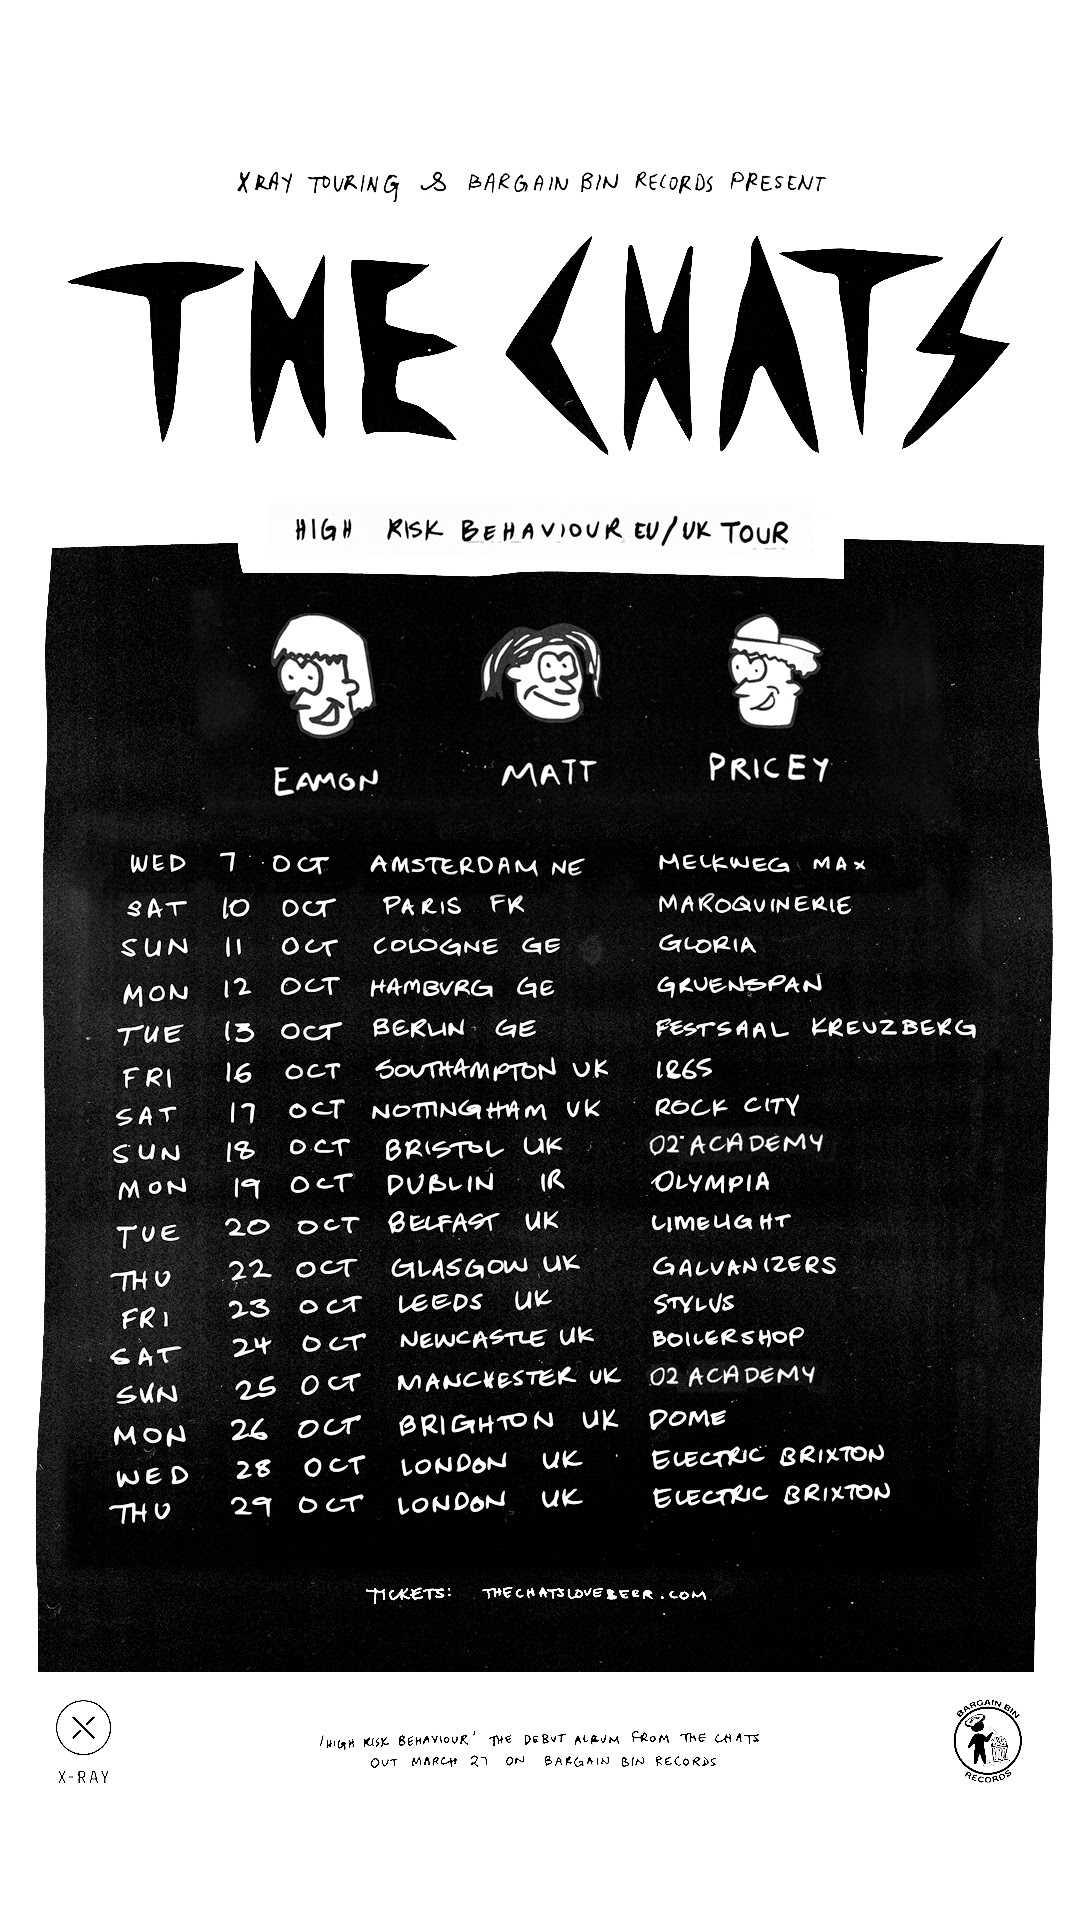 XRAY TOURING & BARGAIN BIN RECORDS PRESENT
THE CHATS
HIGH RISK BEHAVIOUR EU/UK TOUR
EAMON MATT PRICEY
WED 7 OCT AMSTERDAM NE MELKWEG MAX
SAT 10 OCT PARIS FR MAROQUINERIE
SUN 11 OCT COLOGNE GE GLORIA
MON 12 OCT HAMBURG GE GRUENSPAN
TUE 13 OCT BERLIN GE FESTSAAL KREUZBERG
FRI 16 OCT SOUTHAMPTON UK 1865
SAT 17 OCT NOTTINGHAM UK ROCK CITY
SUN 18 OCT BRISTOL UK O2 ACADEMY
MON 19 OCT DUBLIN IR OLYMPIA
TUE 20 OCT BELFAST UK LIMELIGHT
THU 22 OCT GLASGOW UK GALVANIZERS
FRI 23 OCT LEEDS UK STYLUS
SAT 24 OCT NEWCASTLE UK BOILERSHOP
SUN 25 OCT MANCHESTER UK O2 ACADEMY
MON 26 OCT BRIGHTON UK DOME
WED 28 OCT LONDON UK ELECTRIC BRIXTON
THU 29 OCT LONDON UK ELECTRIC BRIXTON
TICKETS: THECHATSLOVEBEER.COM
'HIGH RISK BEHAVIOUR' THE DEBUT ALBUM FROM THE CHATS
OUT MARCH 27 ON BARGAIN BIN RECORDS
X-RAY
BARGAIN BIN
RECORDS